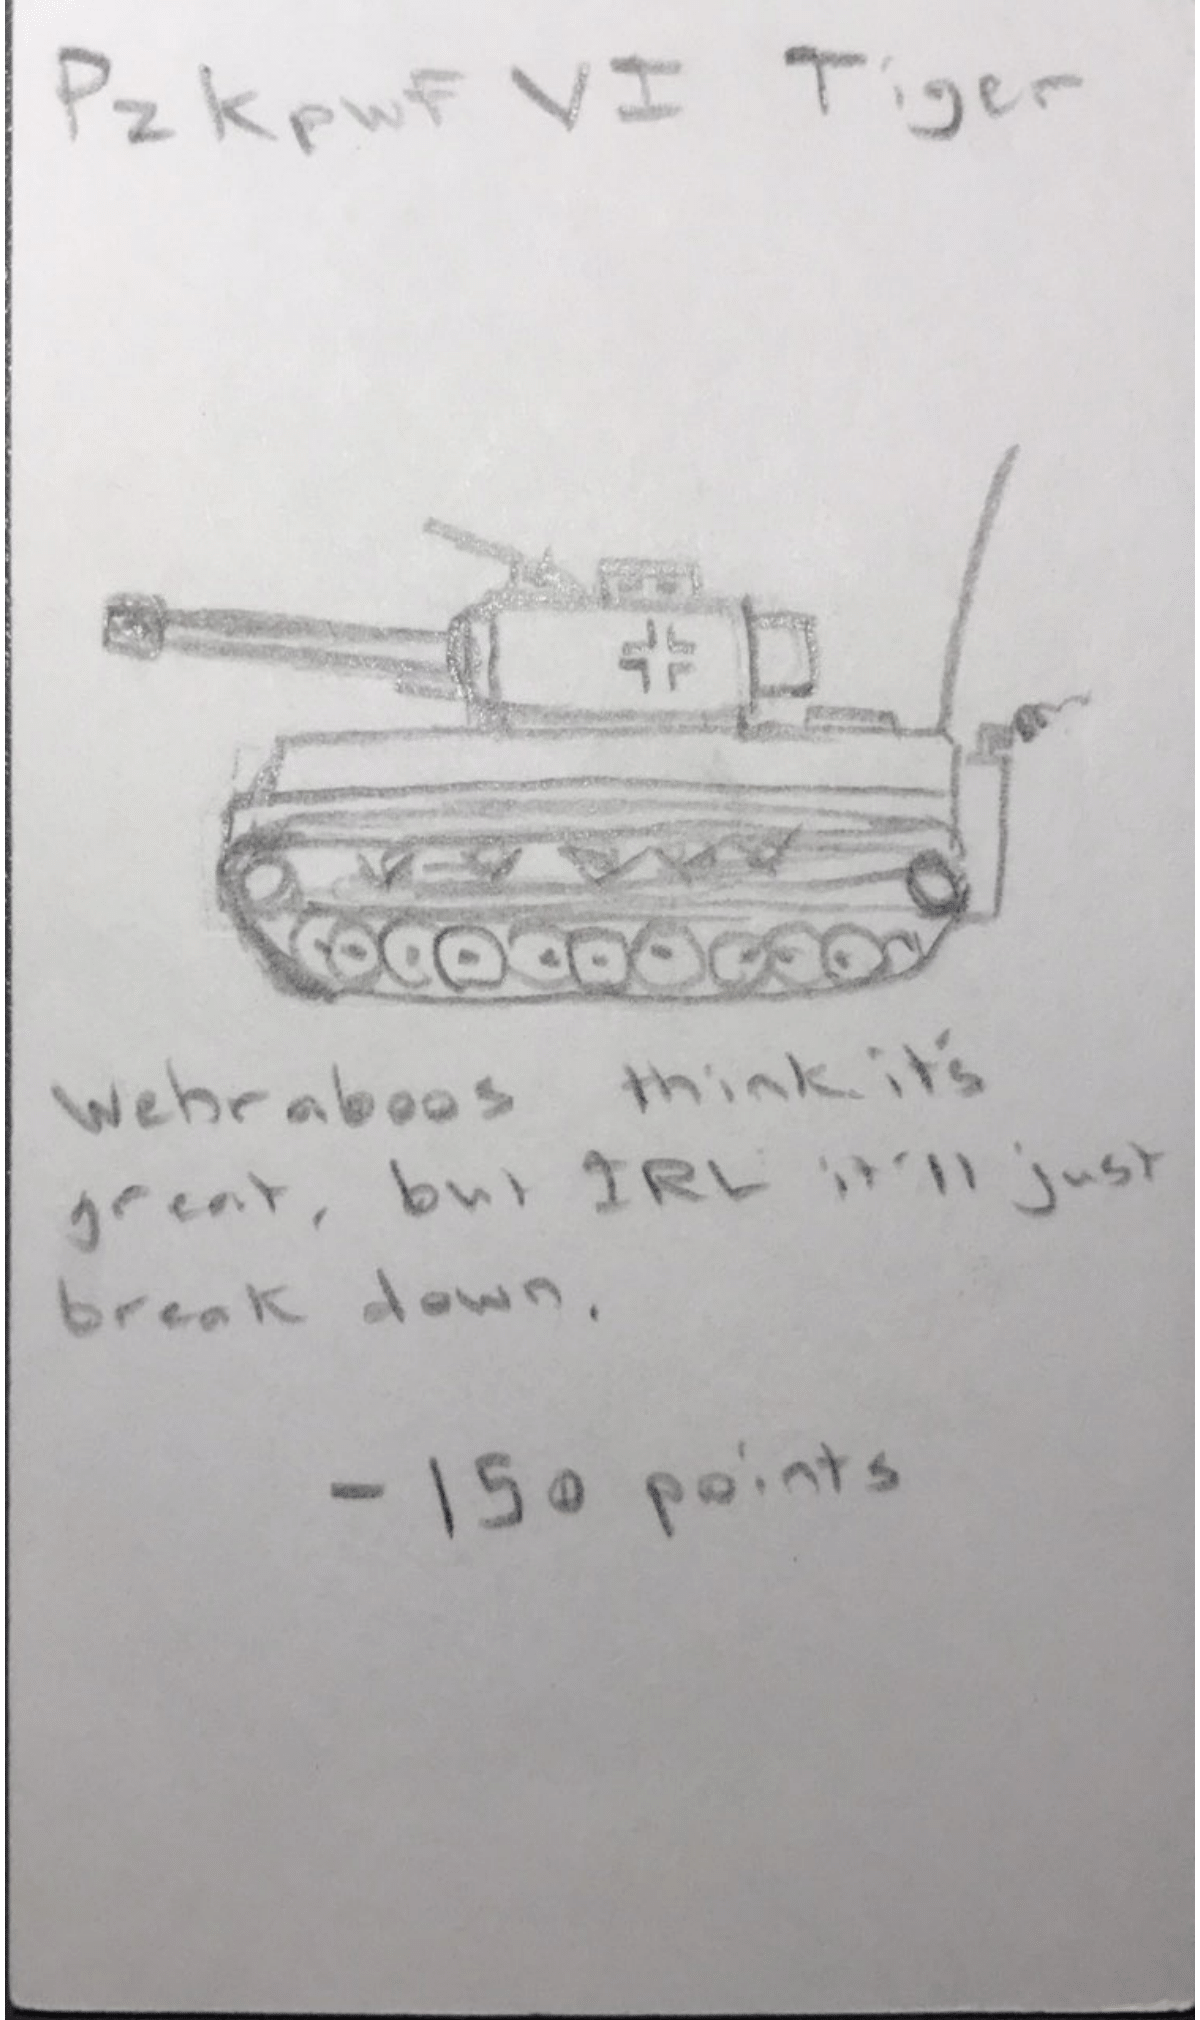 PzKpwF VI Tiger
Wehraboos think it's
great, but IRL it'll just
break down.
-150 points